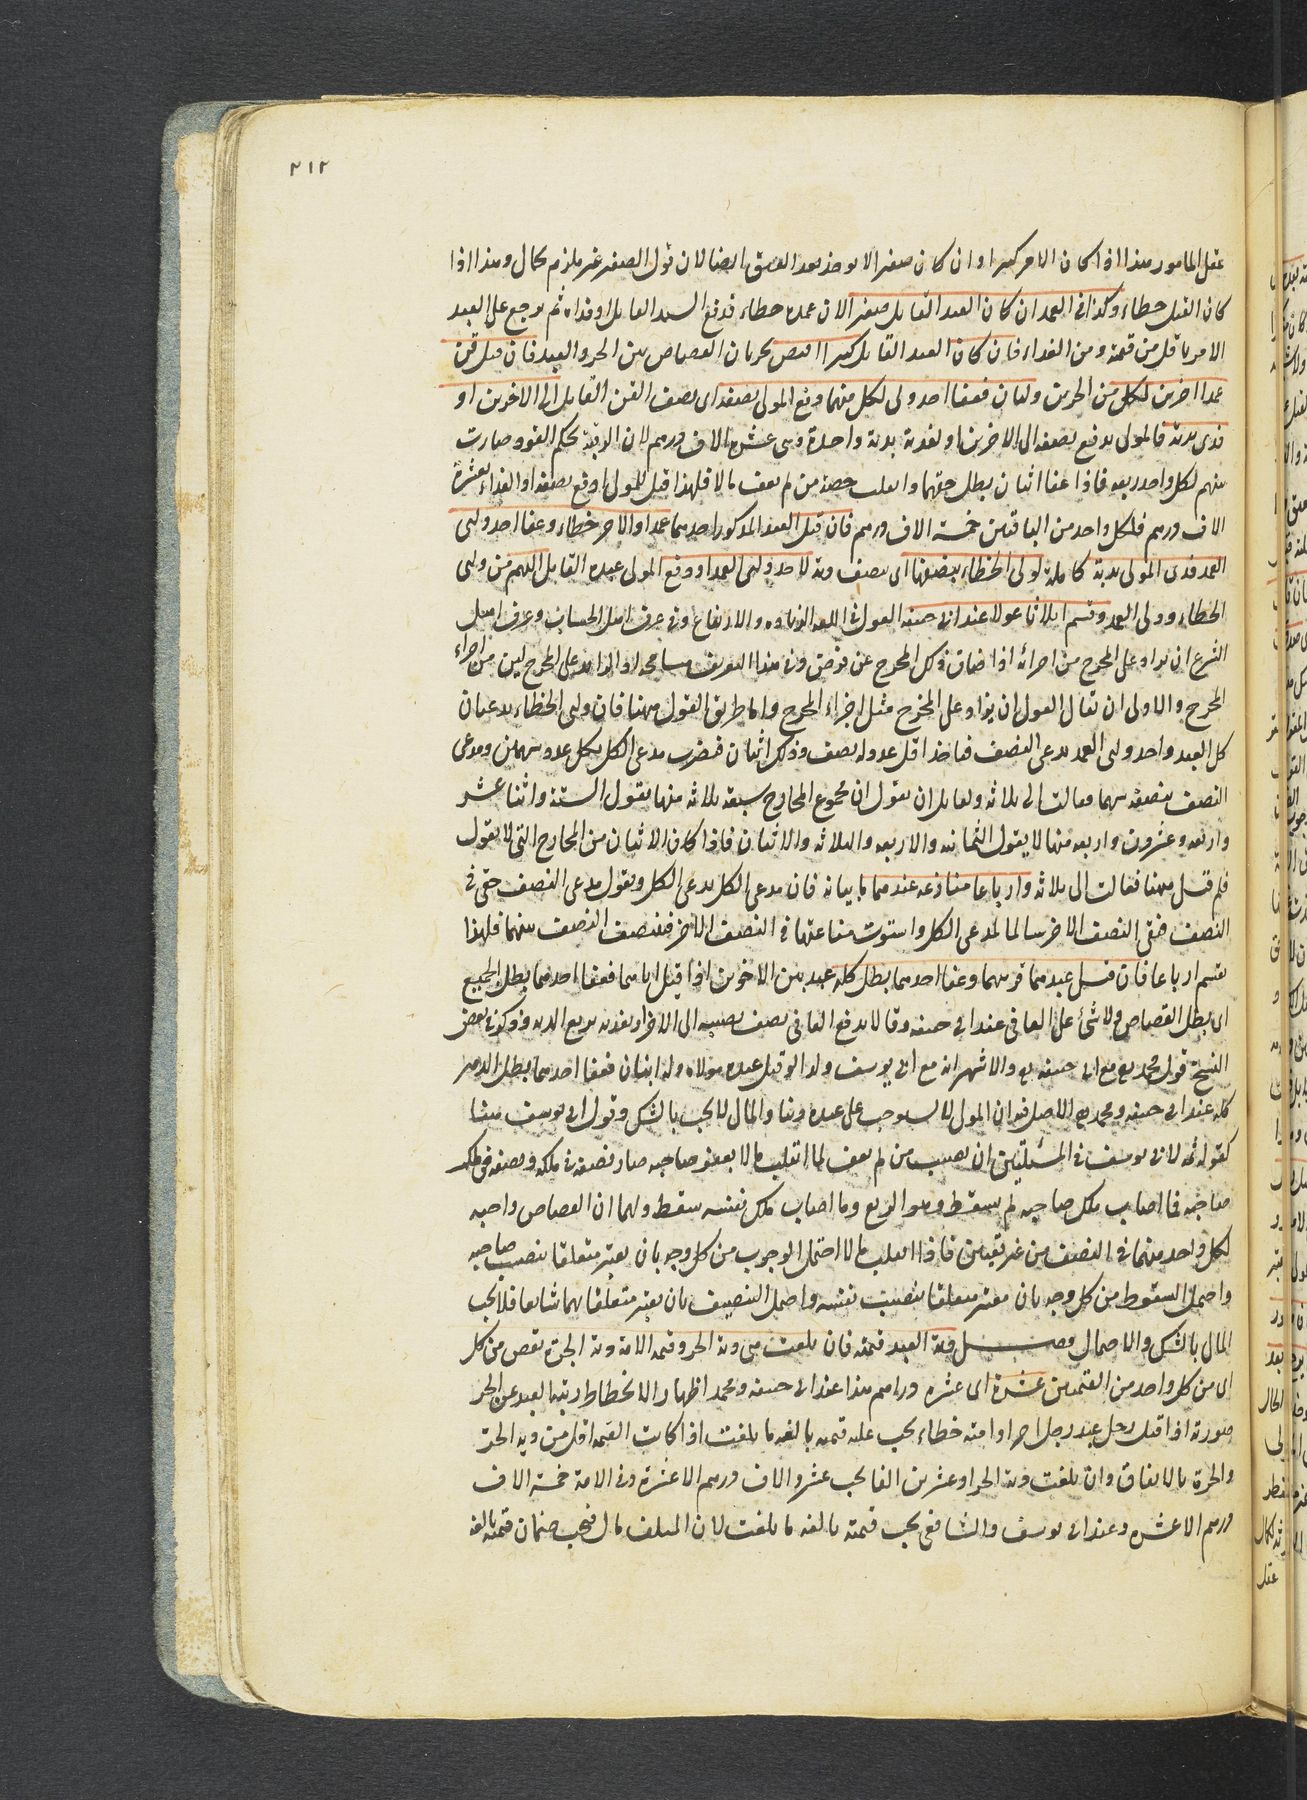 ٣١٢
عقل المامور هذا اذا كان الامر كبيرا وان كان صغيرا لا يوخذ بعد العتق ايضا لان قول الصغير غير ملزم بحال وهذا اذا
كان القتل خطاء وكذا فى العمد ان كان العبد القاتل صغيرا لان عمده خطاء فدفع السيد القاتل او فداه ثم يرجع على العبد
الامر باقل من قيمته ومن الفداء فان كان العبد القاتل كبيرا اقتص لجريان القصاص بين الحر والعبد فان قتل قن
عمدا اخرين لكل من الحرين وليان فعفا احد ولى لكل منهما دفع المولى نصفه اى نصف القن القاتل الى الاخرين او
فدى بدية فالمولى يدفع نصفه الى الاخرين او يفديه بدية واحدة وهى عشرة الاف درهم لان الرقبة بحكم القود صارت
بينهم لكل واحد ربعه فاذا عفا اثنان بطل حقهما وانقلب حصة من لم يعف مالا فلهذا قيل للمولى ادفع نصفه او الفداء بعشرة
الاف درهم فلكل واحد من الباقيين خمسة الاف درهم فان قتل العبد المذكور احدهما عمدا والاخر خطاء وعفا احد وليى
العمد فدى المولى بدية كاملة لولى الخطاء بنصفها اى نصف دية لاحد وليى العمد او دفع المولى عبده القاتل اليهم من وليى
الخطاء وولى العمد وقسم اثلاثا عولا عند ابى حنيفه العول فى اللغه الزياده والارتفاع وفى عرف اهل الحساب وعرف اهل
الشرع ان يزاد على المخرج من اجزائه اذا ضاق فى كل المخرج عن فرض وفى هذا التعريف مسامحه اذ الزايد على المخرج ليس من اجزاء
المخرج والاولى ان يقال العول ان يزاد على المخرج مثل اجزاء المخرج واما طريق العول ههنا فان وليى الخطاء يدعيان
كل العبد واحد وليى العمد يدعى النصف فياخذ اقل عدد له نصف وذلك اثنان فيضرب مدعى الكل بكل عدد سهمين ومدعى
النصف بنصفه سهما فعالت الى ثلاثه ولقايل ان يقول ان مجموع المخارج سبعه ثلاثه منها يعول الستة واثنا عشر
واربعه وعشرون واربعه منها لا يعول الثمانيه والاربعه والثلاثه والاثنان فاذا كان الاثنان من المخارج التى لا يعول
فلم قيل ههنا فعالت الى ثلاثه وارباعا منازعه عندهما بيانه فان مدعى الكل يدعى الكل ويقول مدعى النصف حقى فى
النصف فبقى النصف الاخر سالما لمدعى الكل واستوت منازعتهما فى النصف الاخر فينصف النصف بينهما فلهذا
يقسم ارباعا فان قتل عبدهما قريبهما وعفا احدهما بطل كله عبد بين الاخوين اذا قتل اباهما فعفا احدهما بطل الجميع
اى بطل القصاص ولا شئ على العافى عند ابى حنيفه وقالا يدفع العافى نصف نصيبه الى الاخر او يفديه بربع الديه وذكر فى بعض
النسخ قول محمد رح مع ابى حنيفه رح والاشهر انه مع ابى يوسف ولو قتل عبده مولاه وله ابنان فعفا احدهما بطل الدم
كله عند ابى حنيفه ومحمد رح الاصل فيه ان المولى لا يستوجب على عبده دينا والمال لا يجب بالشك وقول ابى يوسف هنا
كقوله ثمه لابى يوسف فى المسئلتين ان نصيب من لم يعف لما انقلب مالا بعفو صاحبه صار نصفه فى ملكه ونصفه فى ملك
صاحبه فما اصاب ملك صاحبه لم يسقط وهو الربع وما اصاب ملك نفسه سقط ولهما ان القصاص واجب
لكل واحد منهما فى النصف من غير تعيين فاذا انقلب مالا احتمل الوجوب من كل وجه بان يعتبر متعلقا بنصيب صاحبه
واحتمل السقوط من كل وجه بان يعتبر متعلقا بنصيب نفسه واحتمل التنصيف بان يعتبر متعلقا بهما شايعا فلا يجب
المال بالشك والاحتمال فصل دية العبد قيمته فان بلغت هى دية الحر وقيمة الامة دية الحرة نقص من كل
اى من كل واحد من القيمتين عشرة اى عشره دراهم هذا عند ابى حنيفه ومحمد اظهارا لانحطاط رتبة العبد عن الحر
صورة اذا قتل رجل عبد رجل اخر او امته خطاء يجب عليه قيمته بالغه ما بلغت اذا كانت القيمه اقل من دية الحر
والحرة بالاتفاق وان بلغت دية الحر او عشرين الفا يجب عشرة الاف درهم الا عشرة وفى الامة خمسة الاف
درهم الا عشره وعند ابى يوسف والشافعى يجب قيمته بالغه ما بلغت لان المتلف مال فيجب ضمان قيمته بالغه